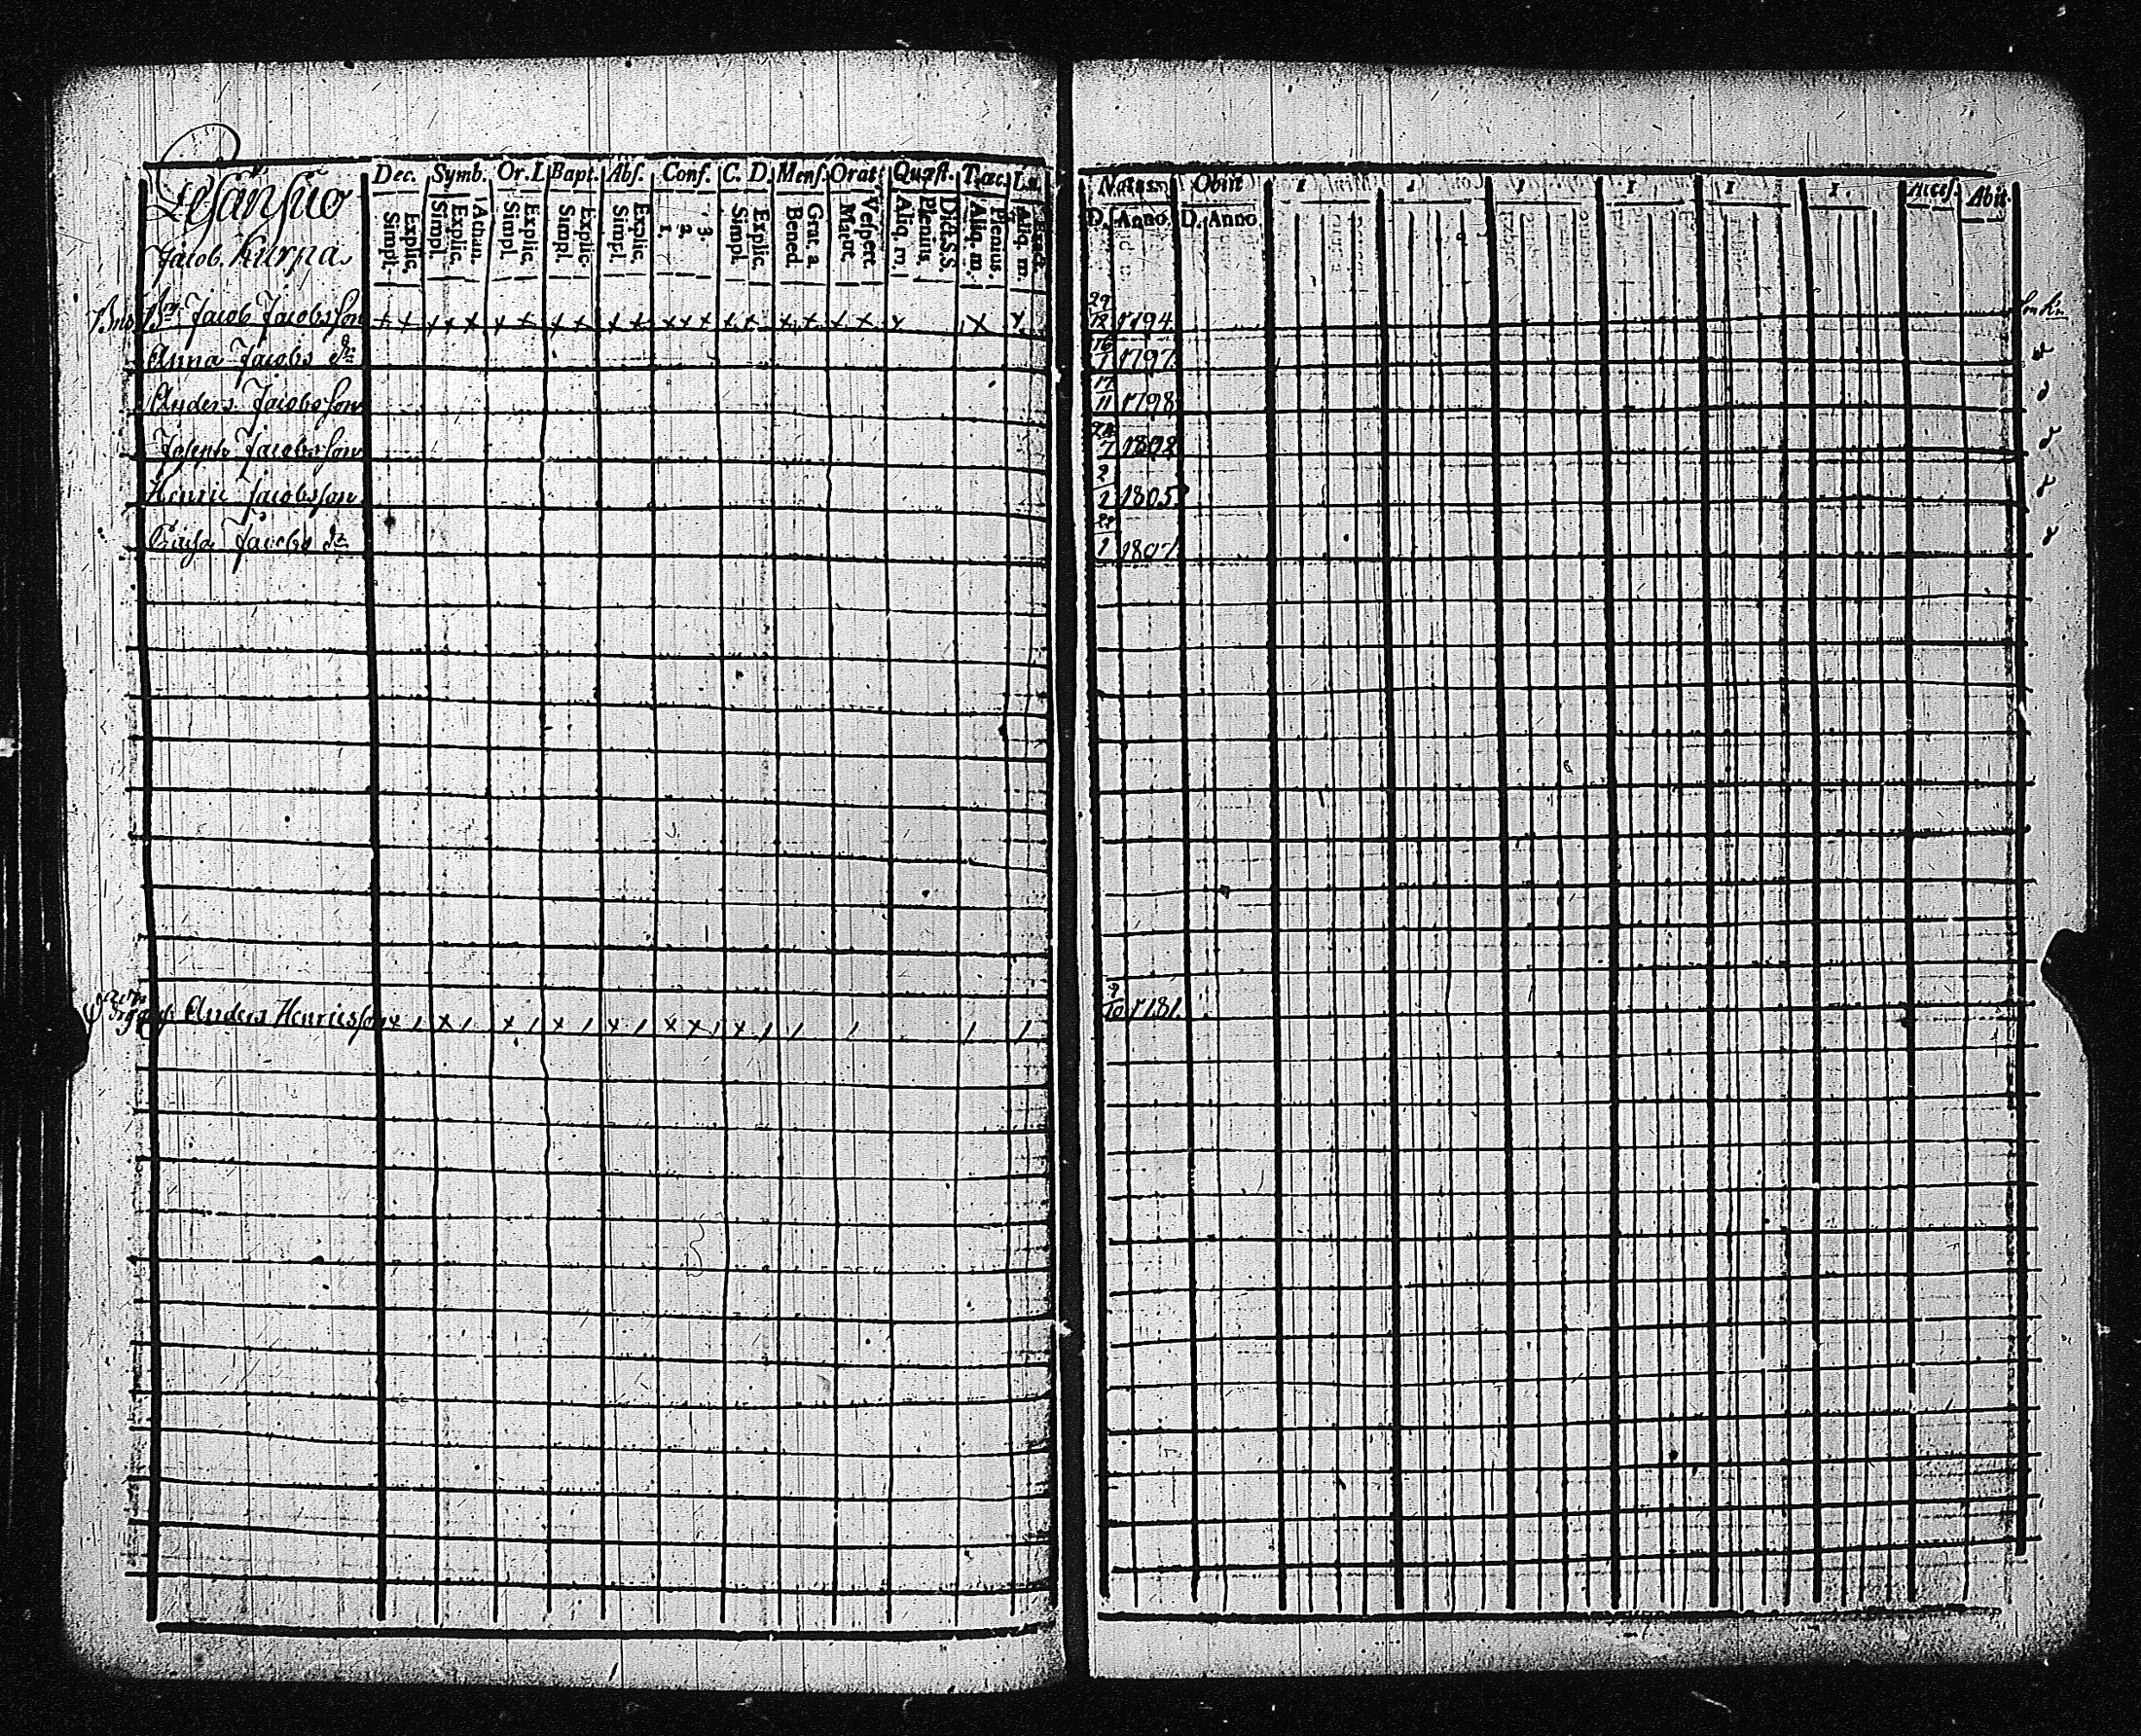 Dec. Symb. Or. L Bapt. Abſ. Conf. C. D. Menſ. Orat. Quæſt.
Explic. Simpl. Athan. Explic. Simpl. Explic. Simpl. Explic. Simpl. Explic. Simpl. 3. 2. 1. Explic. Simpl. Grat. a. Bened. Veſpert. Matut. Dict. S.S. Plenius. Aliq. m. Plenius. Aliq. m. Exact. Aliq. m.
Leſänſuo
Jacob. Kurpa
Jacob Jacobsſon x x x x x x x x x x x x x x x x x x x x x x x
Anna Jacobs dr
Anders Jacobsſon
Joseph Jacobsſon
Henric Jacobsſon
Caisa Jacobs dr
Anders Henricsſon x / x / x / x / x / x x / x / / / / /
Natus Obiit 1 1 1 1 1 1 Acceſ. Abiit
D. Anno D. Anno
29/12 1794
16/1 1797
17/11 1798
7 1802
2/1 1805
1 1807
9/10 1781